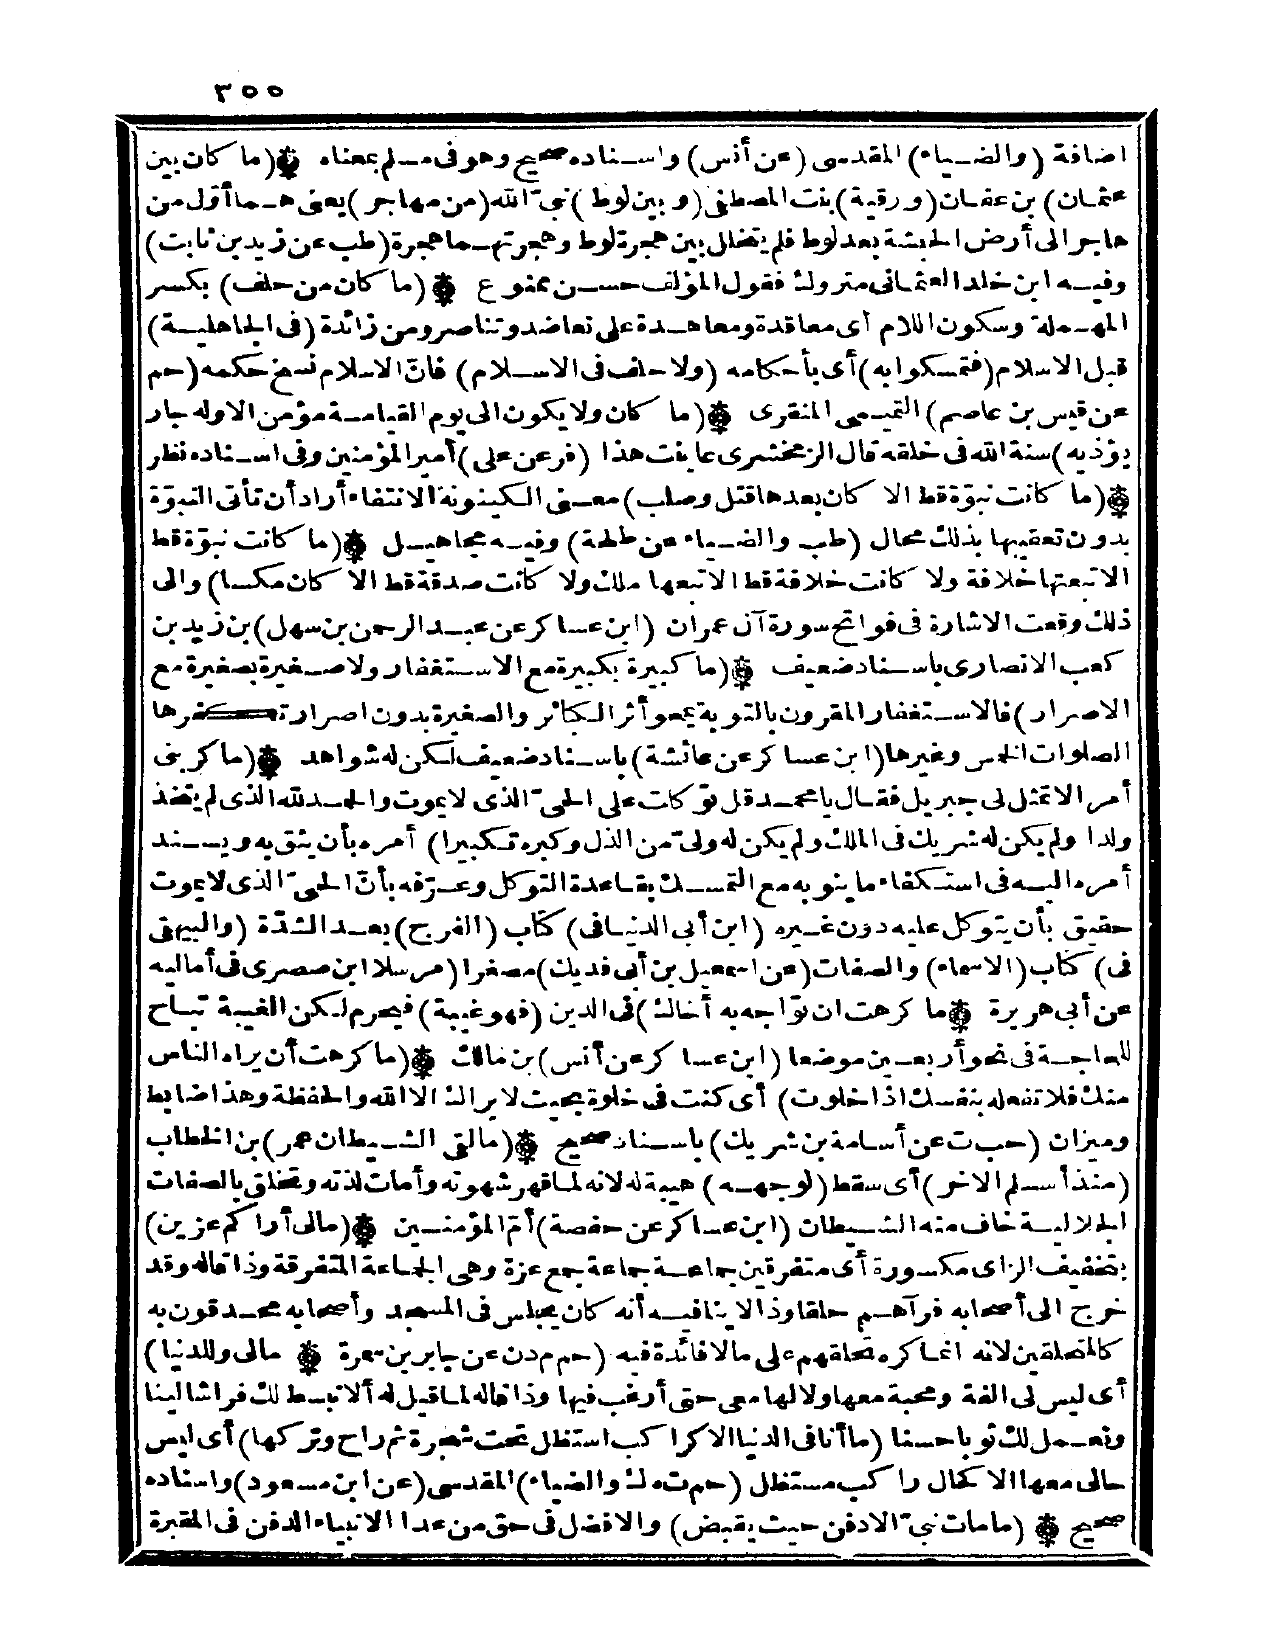 ٣٥٥
اضافة (والضياء) المقدسى (عن أنس) واسناده صحيح وهو فى مسلم بمعناه ۞ (ما كان بين
عثمان) بن عفان (ورقية) بنت المصطفى (وبين لوط) نبىّ الله (من مهاجر) يعنى هما أول من
هاجر الى أرض الحبشة بعد لوط فلم يتخلل بين هجرة لوط وهجرتهما هجرة (طب عن زيد بن ثابت)
وفيه ابن خلد العثمانى متروك فقول المؤلف حسن ممنوع ۞ (ما كان من حلف) بكسر
المهملة وسكون اللام أى معاقدة ومعاهدة على تعاضد وتناصر ومن زائدة (فى الجاهلية)
قبل الاسلام (فتمسكوا به) أى بأحكامه (ولا حلف فى الاسلام) فانّ الاسلام نسخ حكمه (حم
عن قيس بن عاصم) التميمى المنقرى ۞ (ما كان ولا يكون الى يوم القيامة مؤمن الا وله جار
يؤذيه) سنة الله فى خلقه قال الزمخشرى عاينت هذا (فر عن على) أمير المؤمنين وفى اسناده نظر
۞ (ما كانت نبوّة قط الا كان بعدها قتل وصلب) معنى الكينونة الانتفاء أراد أن تأتى النبوّة
بدون تعقيبها بذلك محال (طب والضياء عن طلحة) وفيه مجاهيل ۞ (ما كانت نبوّة قط
الا تبعتها خلافة ولا كانت خلافة قط الا تبعها ملك ولا كانت صدقة قط الا كان مكسا) والى
ذلك وقعت الاشارة فى فواتح سورة آل عمران (ابن عساكر عن عبد الرحمن بن سهل) بن زيد بن
كعب الانصارى باسناد ضعيف ۞ (ما كبيرة بكبيرة مع الاستغفار ولا صغيرة بصغيرة مع
الاصرار) فالاستغفار المقرون بالتوبة يمحو أثر الكبائر والصغيرة بدون اصرار تكفرها
الصلوات الخمس وغيرها (ابن عساكر عن عائشة) باسناد ضعيف لكن له شواهد ۞ (ما كربنى
أمر الا تمثل لى جبريل فقال يا محمد قل توكلت على الحىّ الذى لا يموت والحمد لله الذى لم يتخذ
ولدا ولم يكن له شريك فى الملك ولم يكن له ولىّ من الذل وكبره تكبيرا) أمره بأن يثق به ويسند
أمره اليه فى استكفاء ما ينوبه مع التمسك بقاعدة التوكل وعرّفه بأنّ الحىّ الذى لا يموت
حقيق بأن يتوكل عليه دون غيره (ابن أبى الدنيا فى) كتاب (الفرج) بعد الشدّة (والبيهقى
فى) كتاب (الاسماء) والصفات (عن اسمعيل بن أبى فديك) مصغرا (مرسلا ابن صصرى فى أماليه
عن أبى هريرة ۞ ما كرهت ان تواجه به أخاك) فى الدين (فهو غيبة) فيحرم لكن الغيبة تباح
للحاجة فى نحو أربعين موضعا (ابن عساكر عن أنس) بن مالك ۞ (ما كرهت أن يراه الناس
منك فلا تفعله بنفسك اذا خلوت) أى كنت فى خلوة بحيث لا يراك الا الله والحفظة وهذا ضابط
وميزان (حب ت عن أسامة بن شريك) باسناد صحيح ۞ (ما لقى الشيطان عمر) بن الخطاب
(منذ أسلم الاخر) أى سقط (لوجهه) هيبة له لانه لما قهر شهوته وأمات لذته وتخلق بالصفات
الجلالية خاف منه الشيطان (ابن عساكر عن حفصة) أمّ المؤمنين ۞ (مالى أراكم عزين)
بتخفيف الزاى مكسورة أى متفرقين جماعة جماعة جمع عزة وهى الجماعة المتفرقة وذا قاله وقد
خرج الى أصحابه فرآهم حلقا وذا لا ينافيه أنه كان يجلس فى المسجد وأصحابه محدقون به
كالمتحلقين لانه انما كره تحلقهم على مالا فائدة فيه (حم م د ن عن جابر بن سمرة ۞ مالى وللدنيا)
أى ليس لى الفة ومحبة معها ولا لها معى حتى أرغب فيها وذا قاله لما قيل له ألا نبسط لك فراشا لينا
ونعمل لك ثوبا حسنا (ما أنا فى الدنيا الا كراكب استظل تحت شجرة ثم راح وتركها) أى ليس
حالى معها الا كحال راكب مستظل (حم ت ه ك والضياء) المقدسى (عن ابن مسعود) واسناده
صحيح ۞ (ما مات نبىّ الا دفن حيث يقبض) والافضل فى حق من عدا الانبياء الدفن فى المقبرة